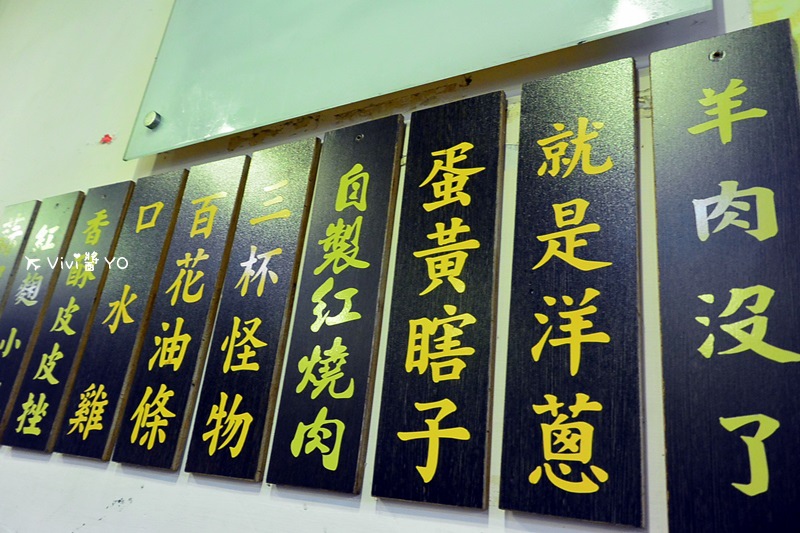 羊肉沒了
就是洋蔥
蛋黃瞎子
自製紅燒肉
三杯怪物
百花油條
口水雞
香酥皮皮挫
紅麴
Vivi醬YO